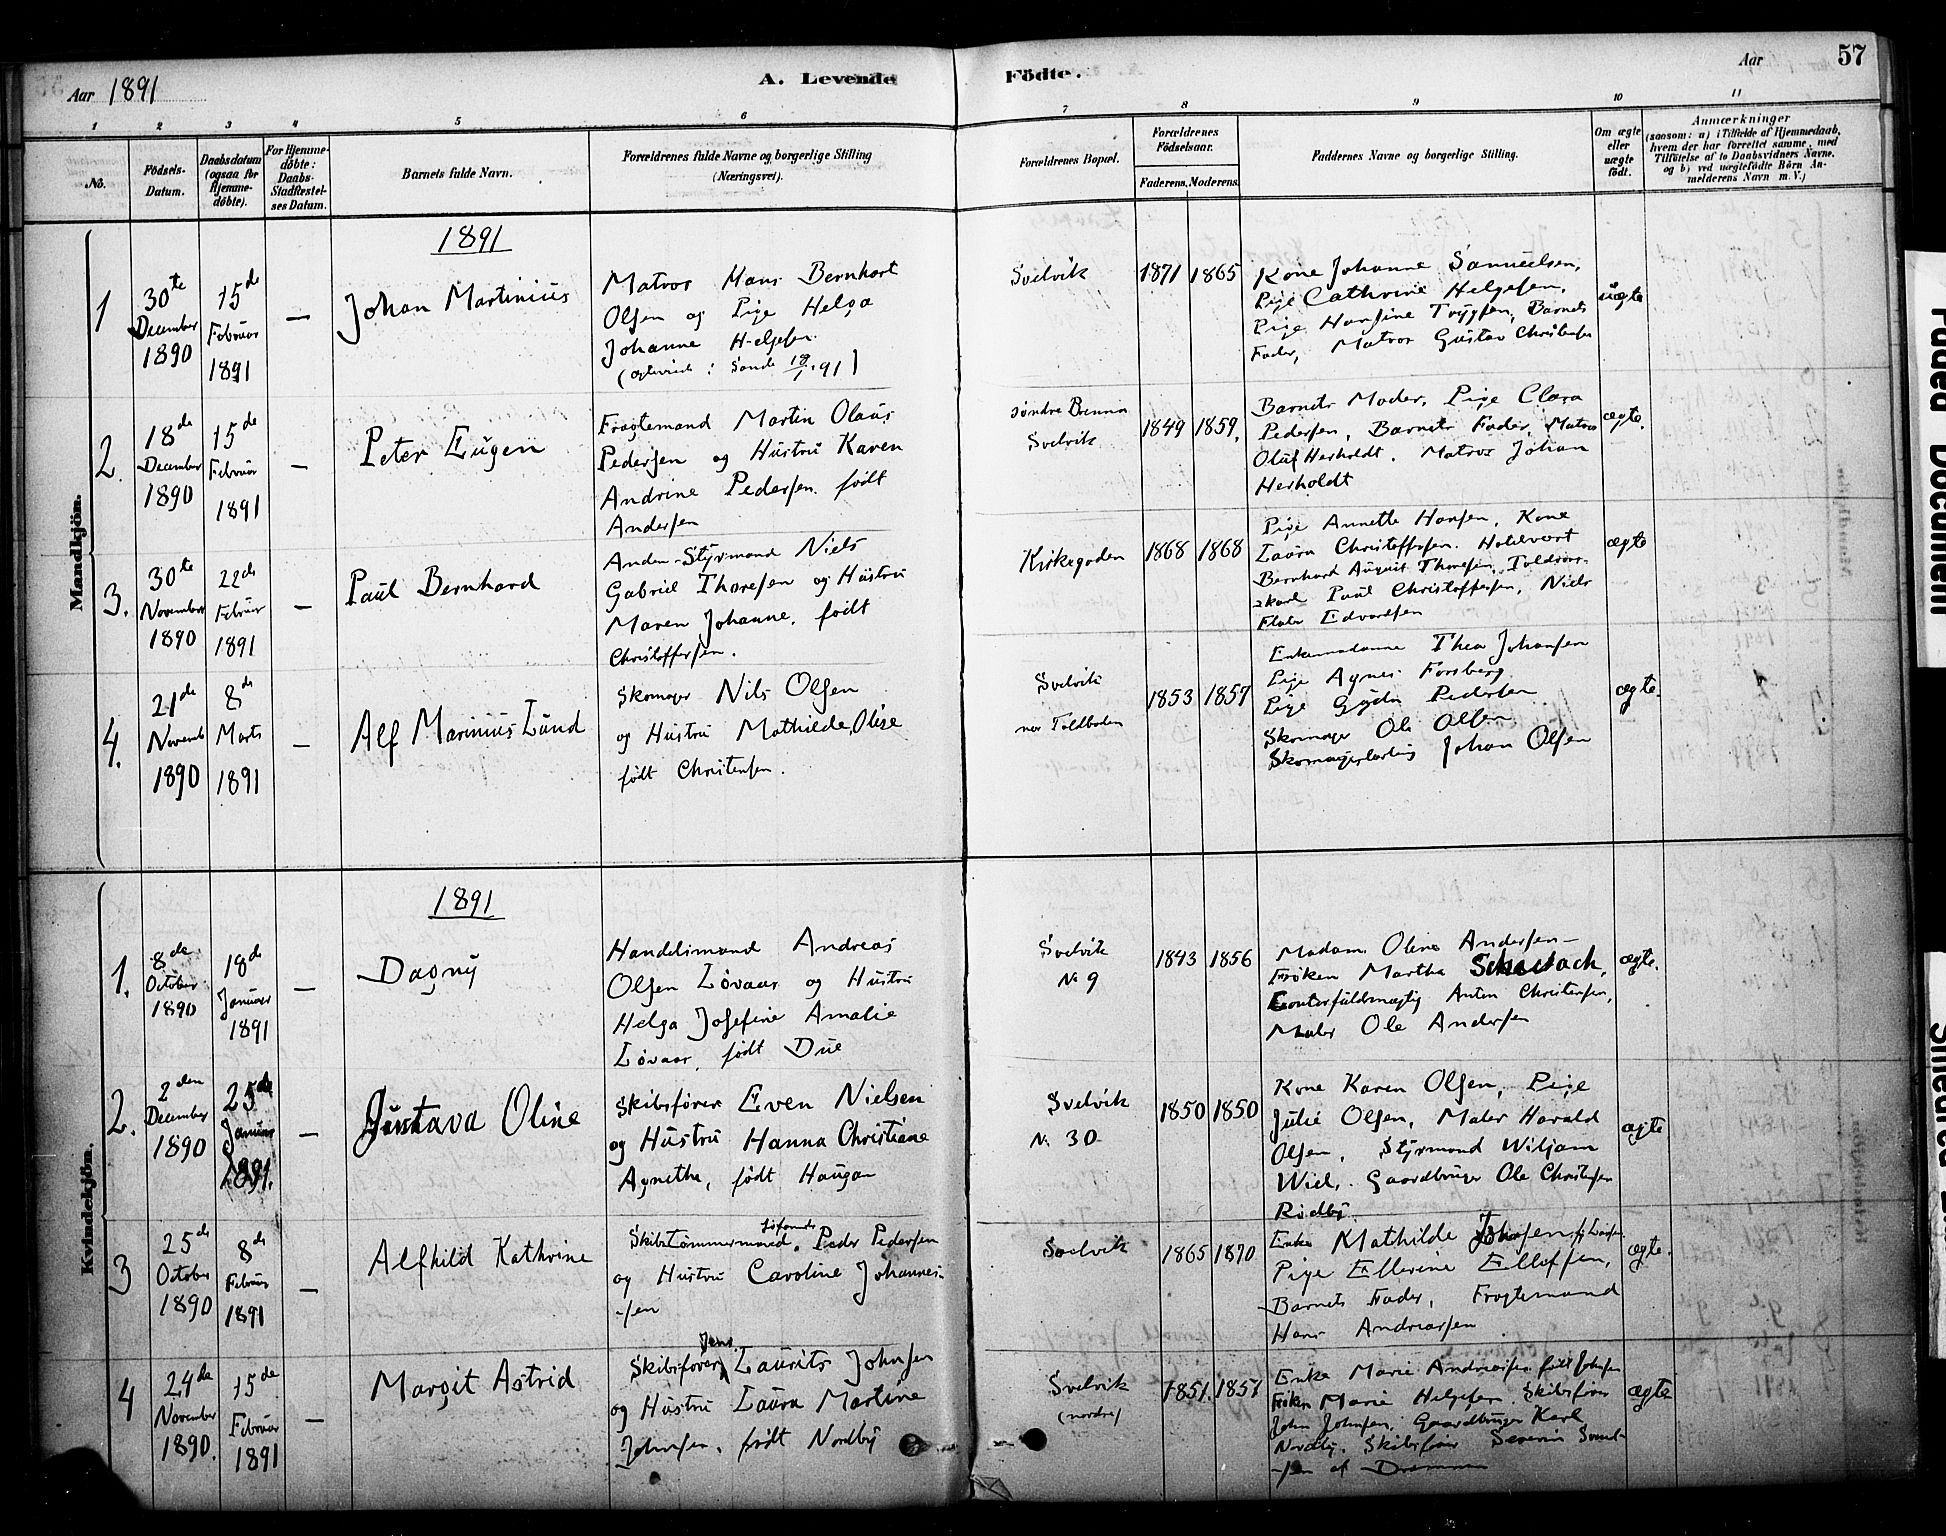 Aar 1891
A. Levende
Födte.
Aar
57
1 2 3 4 5 6 7 8 9 10 11
No.
Födsels-Datum.
Daabsdatum (ogsaa for Hjemmedöbte).
For Hjemmedöbte: Daabs-Stadfæstelses Datum.
Barnets fulde Navn.
Forældrenes fulde Navne og borgerlige Stilling (Næringsvei).
Forældrenes Bopæl.
Forældrenes Födselsaar.
Faderens. Moderens.
Faddernes Navne og borgerlige Stilling.
Om ægte eller uægte födt.
Anmærkninger
(saasom: a) i Tilfælde af Hjemmedaab, hvem der har forrettet samme, med Tilföielse af to Daabsvidners Navne, og b) ved uægtefödte Börn Anmelderens Navn m. V.)
Mandkjön.
1891
1
30te December 1890
15de Februar 1891
—
Johan Martinius
Matros Hans Bernhart
Olsen og Pige Helga
Johanne Helgesen.
( : Sande 18/1 91)
Svelvik
1871 1865
Kone Johanne Samuelsen,
Pige Cathrine Helgesen,
Pige Hansine Tryggsen, Barnets
Fader, Matros Gustav Christensen
uægte
2.
18de December 1890
15de Februar 1891
—
Peter Eugen
Fragtemand Martin Olaus
Pedersen og Hustru Karen
Andrine Pedersen født
Andersen
Søndre
Svelvik
1849 1859,
Barnets Moder, Pige Clara
Pedersen, Barnets Fader, Matros
Oluf Herholdt. Matros Johan
Herholdt
ægte.
3.
30te November 1890
22de Februar 1891
—
Paul Bernhard
Anden-Styrmand Niels
Gabriel Thoresen og Hustru
Maren Johanne, født
Christoffersen.
Kirkegaden
1868 1868
Pige Annette Hansen, Kone
Laura Christoffersen.
Bernhard August Thoresen,
Paul Christoffersen, Niels
Edvardsen
ægte
4.
21de Novemb 1890
8de Marts 1891
—
Alf Marinius Lund
Skomager Nils Olsen
og Hustru Mathilde Olise
født Christensen.
Svelvik
nær Toldboden
1853 1857
Enkemadame Thea Johansen
Pige Agnes Forsberg
Pige Gyda Pedersen
Skomager Ole Olsen
Skomagerlærling Johan Olsen
ægte.
Kvindekjön.
1891
1.
8de October 1890
18de Januar 1891
—
Dagny
Handelsmand Andreas
Olsen Løvaas og Hustru
Helga Josefine Amalie
Løvaas, født Due
Svelvik
No 9
1843 1856
Madam Oline Andersen—
Frøken Martha
Contorfuldmægtig Anton Christensen,
Maler Ole Andersen
ægte.
2.
2den December 1890
25de Januar 1891.
—
Gustava Oline
Skibsfører Even Nielsen
og Hustru Hanna Christiane
Agnethe, født Haugan
Svelvik
No. 30
1850 1850
Kone Karen Olsen, Pige
Julie Olsen, Maler Harald
Olsen, Styrmand Wiljam
Wiel, Gaardbruger Ole Christensen
Rødby.
ægte
3
25de October 1890
8de Februar 1891
—
Alfhild Kathrine
Skibstømmermand, Peder Pedersen
og Hustru Caroline Johannes-
-sen
Svelvik
1865 1870
Enke Mathilde Johnsen
Pige Ellerine Ellefsen,
Barnets Fader, Fragtemand
Hans Andreassen
ægte.
4
24de November 1890.
15de Februar 1891
—
Margit Astrid
Skibsfører Jens Laurits Johnsen
og Hustru Laura Martine
Johnsen, født Nordby
Svelvik
(nordre)
1851. 1857
Enke Marie Andreasen født Johnsen
Frøken Marie Helgesen. Skibsfører
John Johnsen. Gaardbruger Karl
Nordby. Skibsfører Severin
-sen af Drammen
ægte
Faded Document